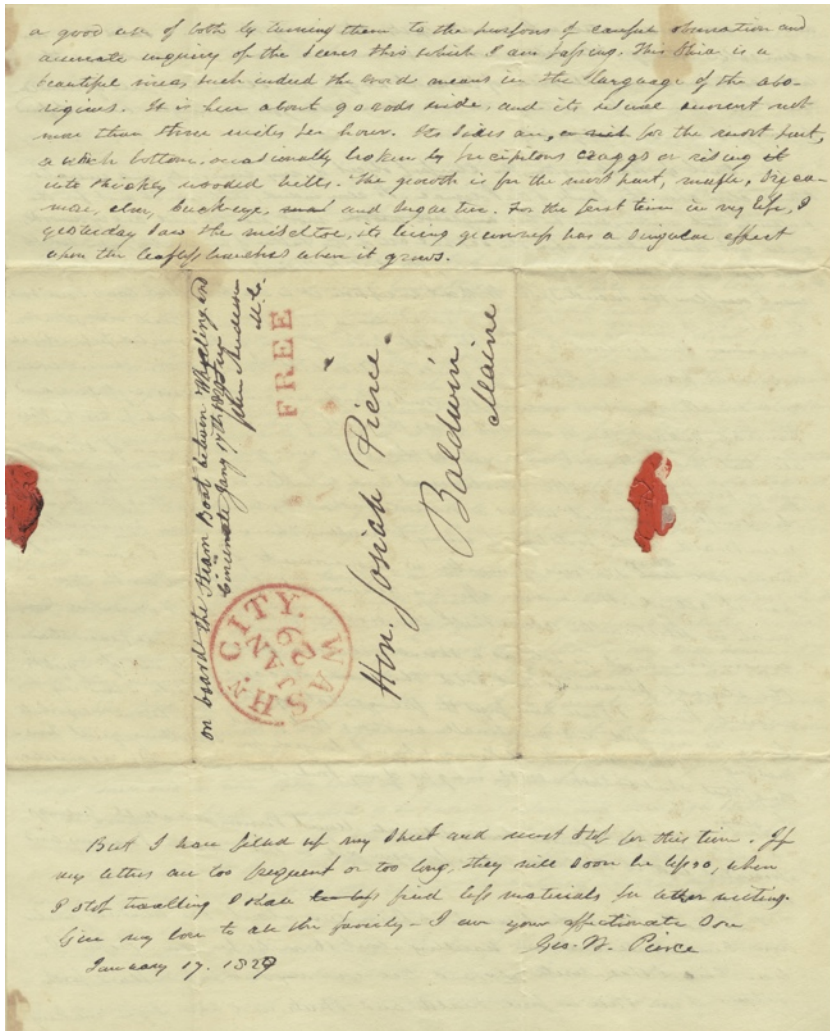 a good use of both by turning them to the purposes of careful observation and
accurate inquiry of the scenes thro which I am passing. This Ohio is a
beautiful river, such indeed the word means in the language of the abo-
rigines. It is here about 90 rods wide, and its usual current not
more than three miles per hour. Its sides are, for the most part,
a rich bottom, occasionally broken by precipitous craggs or rising
into thickly wooded hills. The growth is for the most part, maple, syca-
more, elm, buckeye, and sugar tree. For the first time in my life, I
yesterday saw the miseltoe, its living greenness has a singular effect
upon the leafless branches when it grows.
on board the Steam Boat between Wheeling and
Cincinnate Jany 17th 1829
John Anderson
M.C.
FREE
WASHN. CITY.
JAN
29
Hon. Josiah Pierce.
Baldwin
Maine
But I have filled up my sheet and must stop for this time. If
my letters are too frequent or too long, they will soon be less so, when
I stop travelling I shall find less materials for letter writing.
Give my love to all the family - I am your affectionate Son
Geo. W. Pierce
January 17. 1829